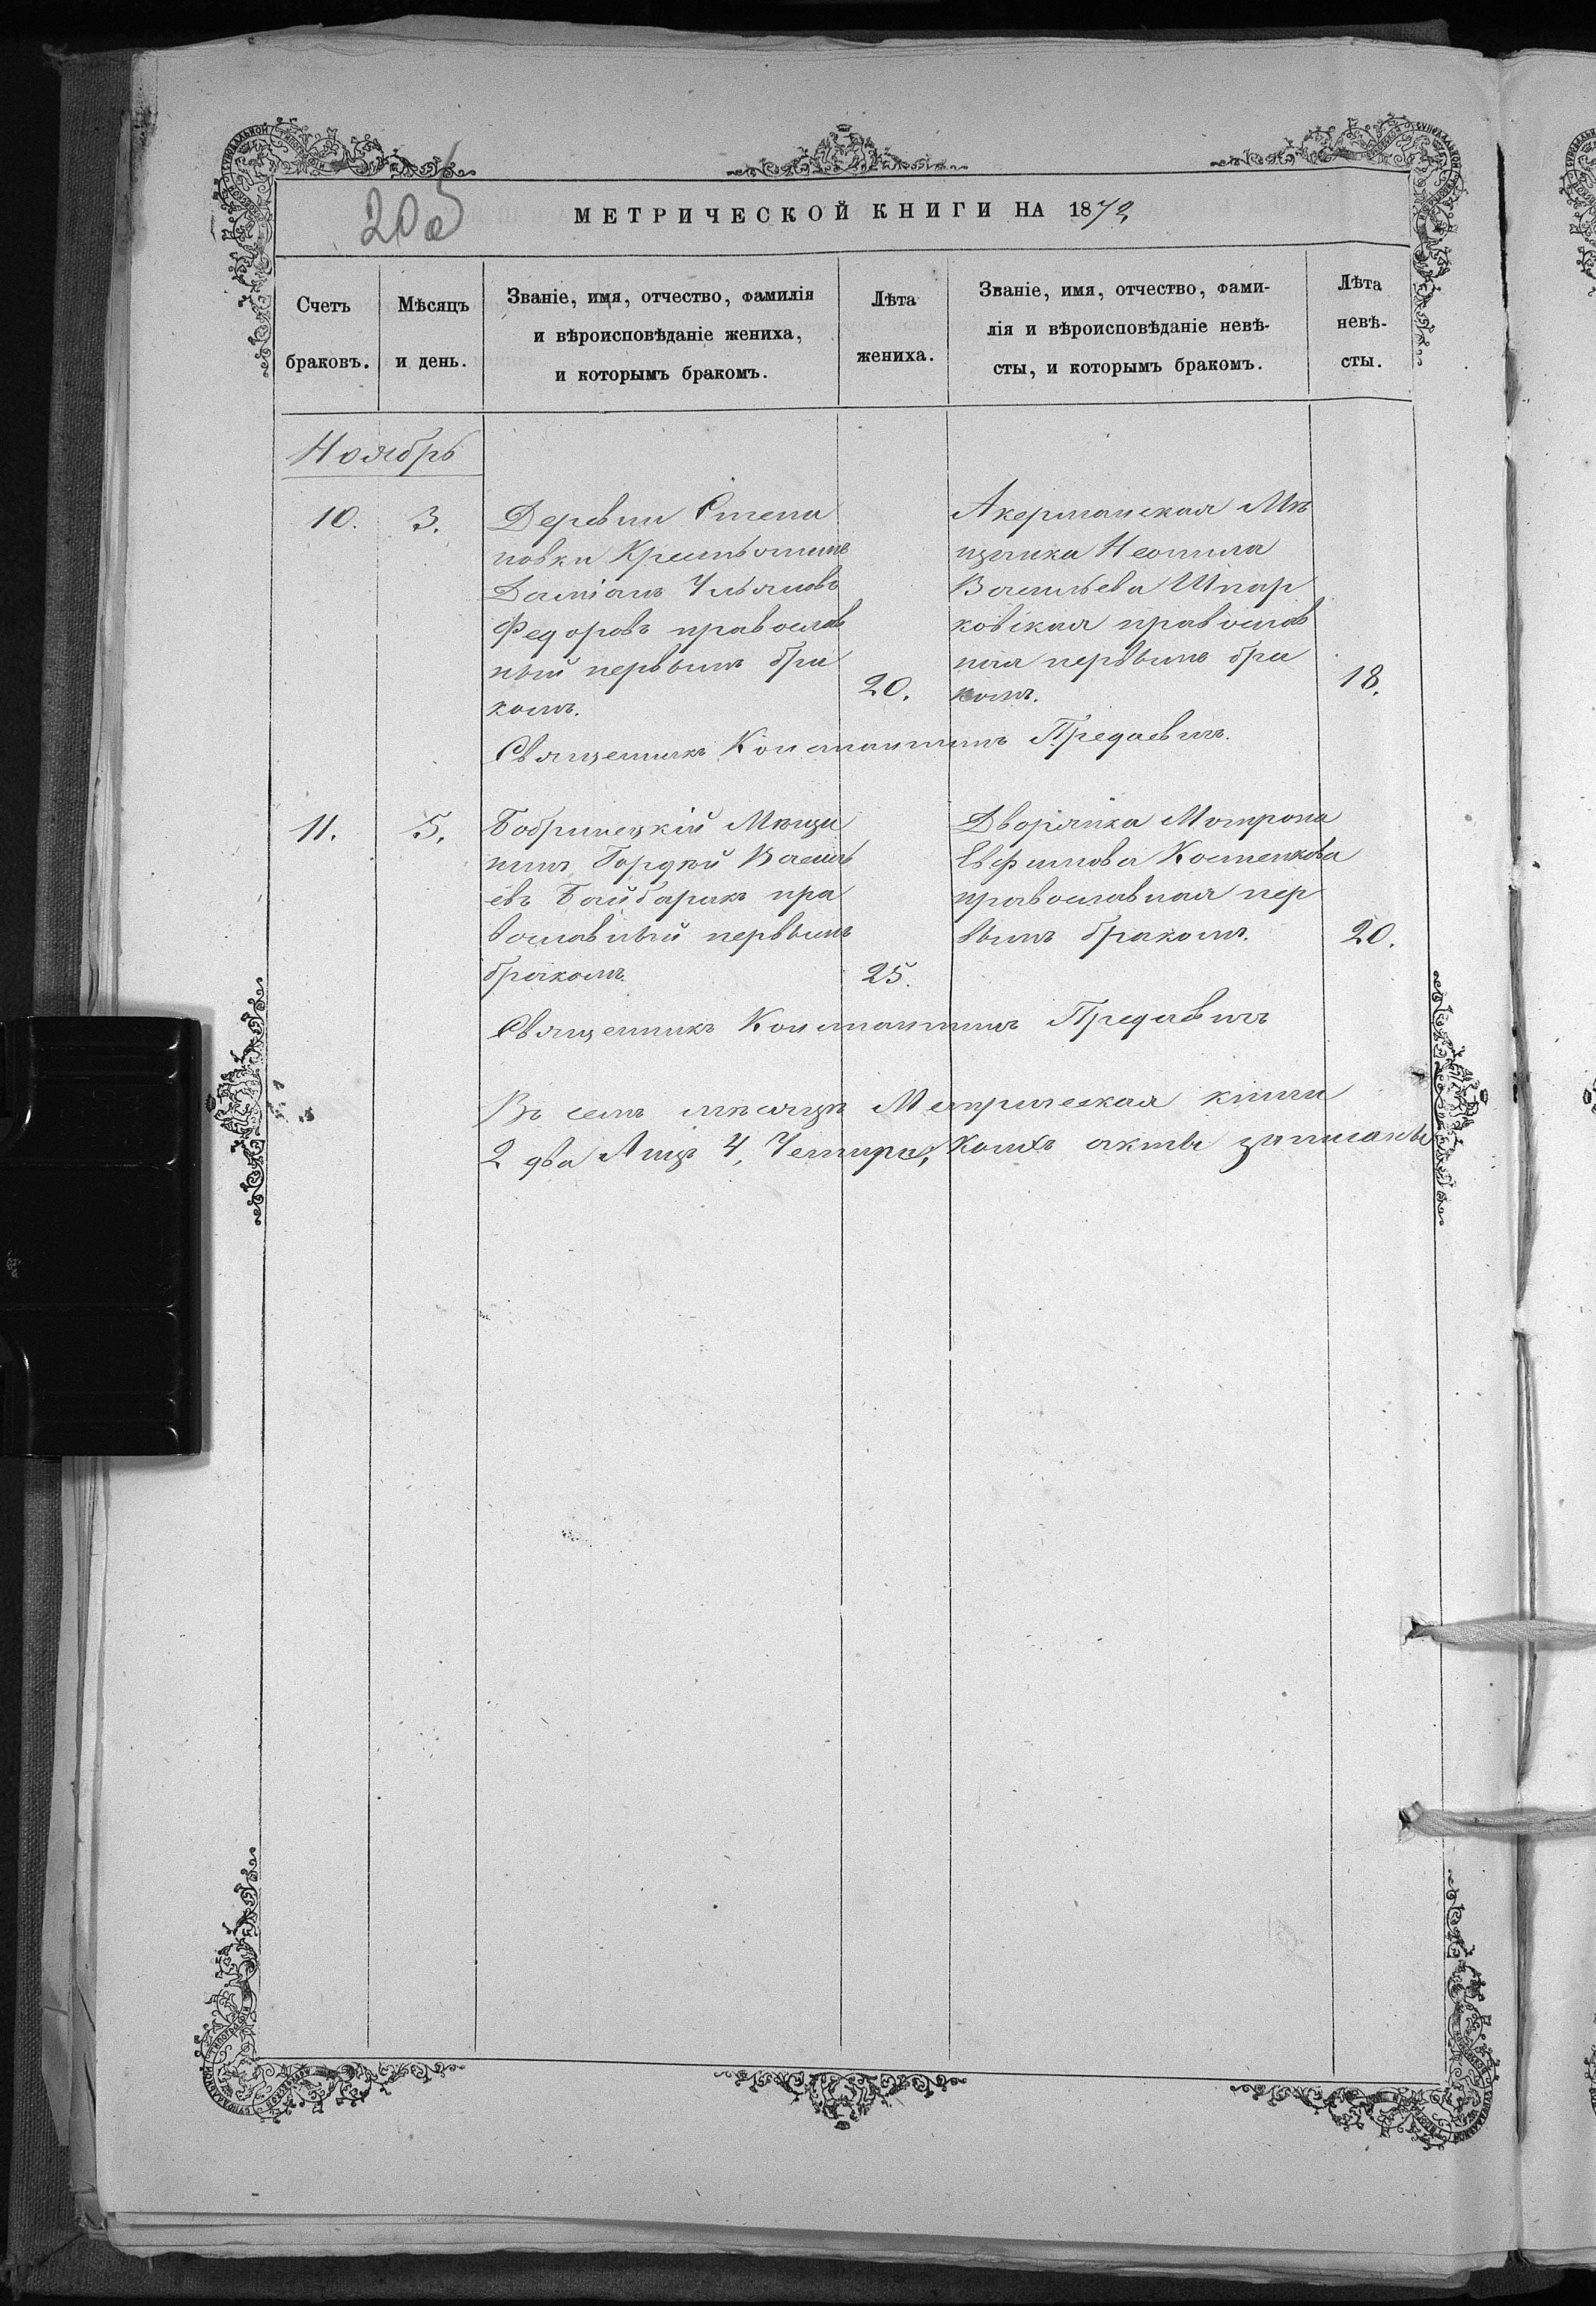 МЕТРИЧЕСКОЙ КНИГИ НА 1872
Счетъ браковъ.
Мѣсяцъ и день.
Званіе, имя, отчество, фамилія
и вѣроисповѣданіе жениха,
и которымъ бракомъ.
Лѣта жениха.
Званіе, имя, отчество, фами-
лія и вѣроисповѣданіе невѣ-
сты, и которымъ бракомъ.
Лѣта невѣ-
сты.
Ноябрь
10.
3.
Деревни Степа
новки Крестьянинъ
Даміанъ Ульяновъ
Федоровъ православ
ный первымъ бра
комъ.
20.
Акерманская Мѣ
щанка Неонила
Васильева Шпар
ковская православ
ная первымъ бра
комъ.
18.
Священникъ Константинъ
11.
5.
Бобринецкій Мѣща
нинъ Гордѣй Василь
евъ Байбаракъ пра
вославный первымъ
бракомъ.
25.
Дворянка Матрона
Евфимова Костенкова
православная пер
вымъ бракомъ.
20.
Священникъ Константинъ
Въ семъ мѣсяцѣ Метрическая книги
2 два Лицъ 4, Четыре, Коихъ акты записаны